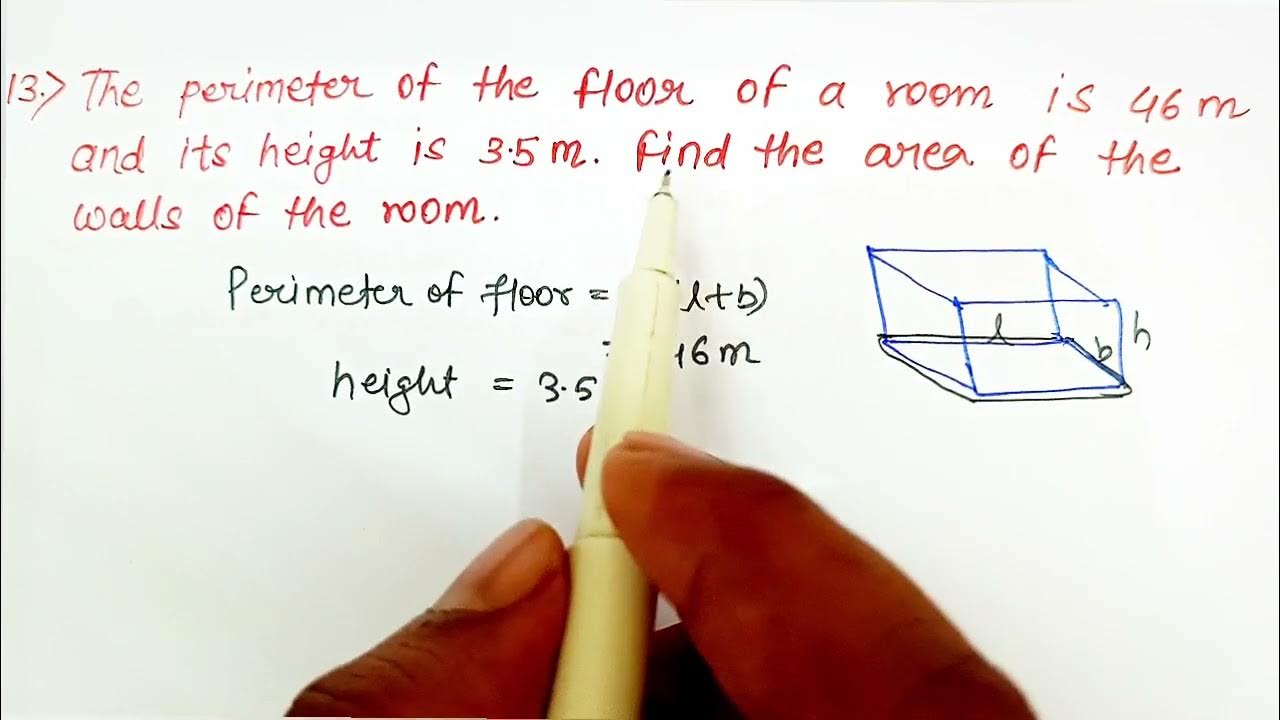 13.) The perimeter of the floor of a room is 46 m
and its height is 3.5 m. Find the area of the
walls of the room.
Perimeter of floor = l+b)
6 m
height = 3.5
l
b
h